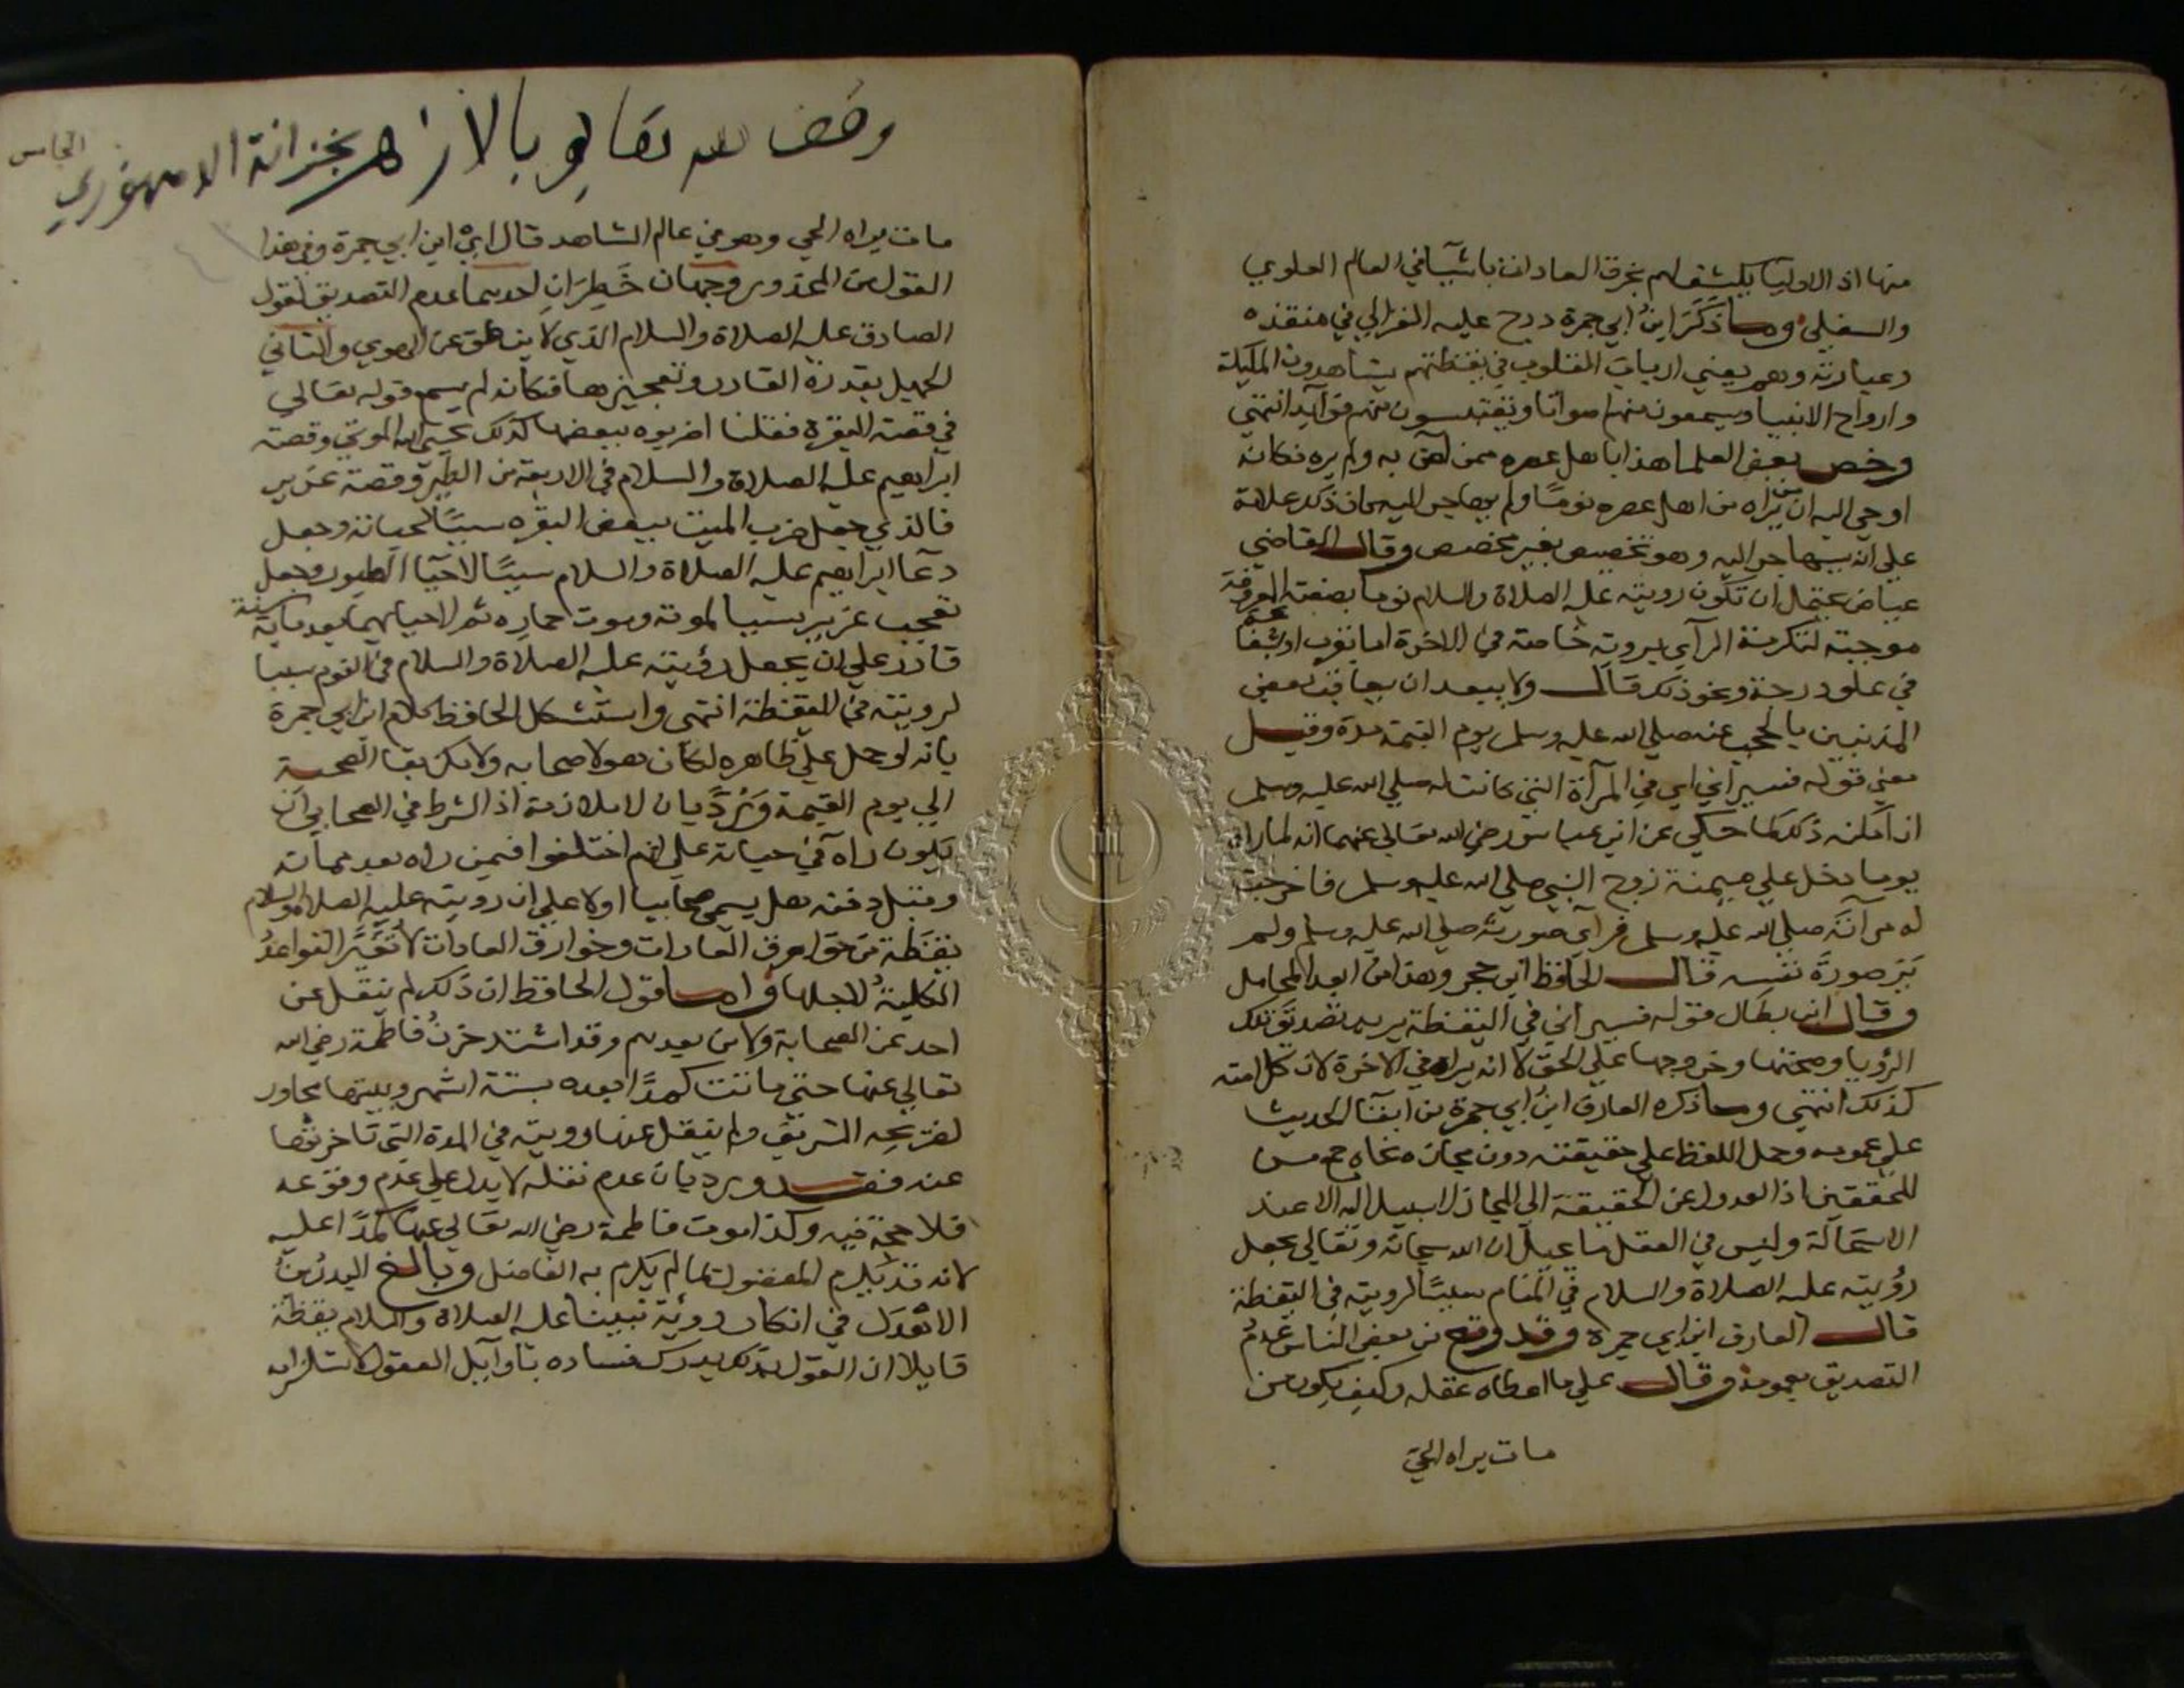 منها اذ الاوليا يكشف لهم بخرق العادات باشيا في العالم العلوي
والسفلي وما ذكر ابن ابي جمرة درج عليه الغزالي في منقذه
وعبارته وهم يعني ارباب القلوب في يقظتهم يشاهدون المليكة
وارواح الانبيا ويسمعون منهم اصواتا ويقتبسون منهم فوايد انتهى
وخص بعض العلما هذا باهل عصره ممن امن به ولم يره فكانه
اوحي اليه ان من يراه من اهل عصره نوما ولم يهاجر اليه كان ذلك علامة
على انه سيهاجر اليه وهو تخصيص بغير مخصص وقال القاضي
عياض يحتمل ان تكون رويته عليه الصلاة والسلام نوما بصفته المعروفة
موجبة لتكرمة الرآي بروية خاصة في الاخرة اما بقرب او شفاعة
في علو درجة ونحو ذلك قال ولا يبعد ان يعاقب بعض
المذنبين بالحجب عنه صلى الله عليه وسلم يوم القيمة مدة وقيل
معنى قوله فسيراني اي في المرآة التي كانت له صلى الله عليه وسلم
ان امكنه ذلك كما حكي عن ابن عباس رضي الله تعالى عنهما انه لما راه
يوما دخل على ميمنة زوج النبي صلى الله عليه وسلم فاخرجت
له مرآته صلى الله عليه وسلم فرآى صورته صلى الله عليه وسلم ولم
ير صورة نفسه قال الحافظ ابن حجر وهذا من ابعد المحامل
وقال ابن بطال قوله فسيراني في اليقظة يريد تصديق تلك
الرؤيا وصحتها وخروجها على الحق لا انه يراه في الاخرة لان كل امته
كذلك انتهى وما ذكره العارف ابن ابي جمرة من ابقآ الحديث
على عمومه وحمل اللفظ على حقيقته دون مجازه نحاه جمع من
المحققين اذ العدول عن الحقيقة الى المجاز لا سبيل اليه الا عند
الاستحالة وليس في العقل ما يحيل ان الله سبحانه وتعالى يجعل
رؤيته عليه الصلاة والسلام في المنام سببا لرويته في اليقظة
قال العارف ابن ابي جمرة وقد وقع من بعض الناس عدم
التصديق بعمومه وقال على ما اعطاه عقله وكيف يكون من
مات يراه الحي
وقف لله تعالى بالازهر بخزانة الدمنهوري
الخامس
مات يراه الحي وهو في عالم الشاهد قال اي ابن ابي جمرة وفي هذا
القول من المحذور وجهان خطران احدهما عدم التصديق لقول
الصادق عليه الصلاة والسلام الذي لا ينطق عن الهوى والثاني
الجهل بقدرة القادر وتعجيزها فكانه لم يسمع قوله تعالى
في قصة البقرة فقلنا اضربوه ببعضها كذلك يحيي الله الموتى وقصة
ابراهيم عليه الصلاة والسلام في الاربعة من الطير وقصة عزير
فالذي جعل ضرب الميت ببعض البقره سببا لحياته وجعل
دعآ ابراهيم عليه الصلاة والسلام سببا لاحيآ الطيور وجعل
تعجب عزير سببا لموته وموت حماره ثم لاحيائهما بعد ماية سنة
قادر على ان يجعل رؤيته عليه الصلاة والسلام في النوم سببا
لرويته في اليقظة انتهى واستشكل الحافظ كلام ابن ابي جمرة
بانه لو حمل على ظاهره لكان هولا صحابه ولامكن بقا الصحبة
الى يوم القيمة ويرد بان لا ملازمة اذ الشرط في الصحابي ان
يكون راه في حياته على انهم اختلفوا فيمن راه بعد مماته
وقبل دفنه هل يسمى صحابيا اولا على ان رويته عليه الصلاة والسلام
يقظة من خوارق العادات وخوارق العادات لا تغير القواعد
الكلية لاجلها واما قول الحافظ ان ذلك لم ينقل عن
احد من الصحابة ولا من بعدهم وقد اشتد حزن فاطمة رضي الله
تعالى عنها حتى ماتت كمدا بعده بستة اشهر وبيتها مجاور
لضريحه الشريف ولم ينقل عنها رويته في المدة التي تاخرتها
عنه فقد ويرد بان عدم نقله لا يدل على عدم وقوعه
فلا حجة فيه وكذا موت فاطمة رضي الله تعالى عنها كمدا عليه
لانه قد يكرم المفضول بما لم يكرم به الفاضل وبالغ البدر بن
الاهدل في انكار روية نبينا عليه الصلاة والسلام يقظة
قايلا ان القول بذلك يدرك فساده باوايل العقول لاستلزامه